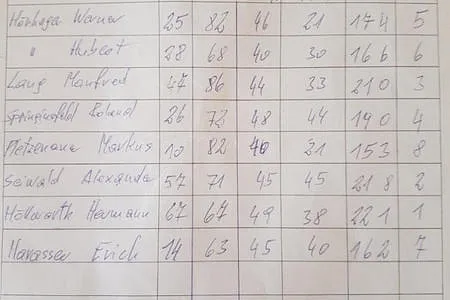 Hörhager Werner 25 82 46 21 174 5
" Hubert 28 68 40 30 166 6
Lang Manfred 47 86 44 33 210 3
Springinsfeld Roland 26 72 48 44 190 4
Markus 10 82 40 21 153 8
Seiwald Alexander 57 71 45 45 218 2
Höllwarth Hermann 67 67 49 38 221 1
Harasser Erich 14 63 45 40 162 7